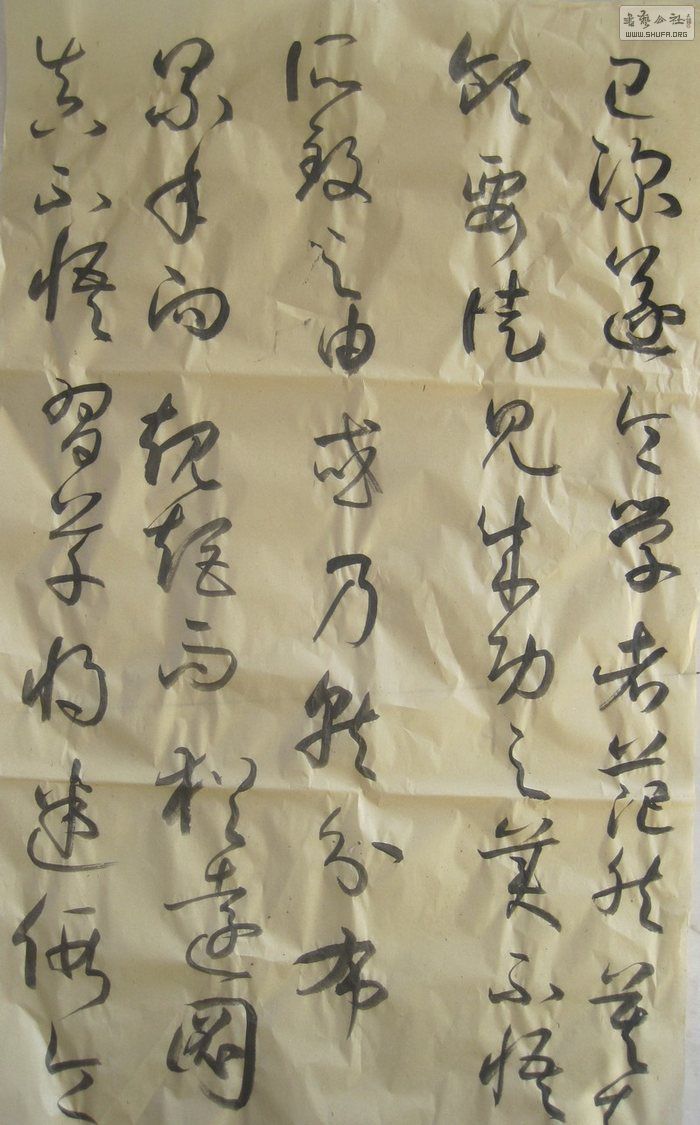 已深遂令學者茫然莫
領要徒見成功之美不悟
所致之由或乃就分布
累年向規矩而猶遠圖
真不悟習草將迷假令
書藝公社
WWW.SHUFA.ORG